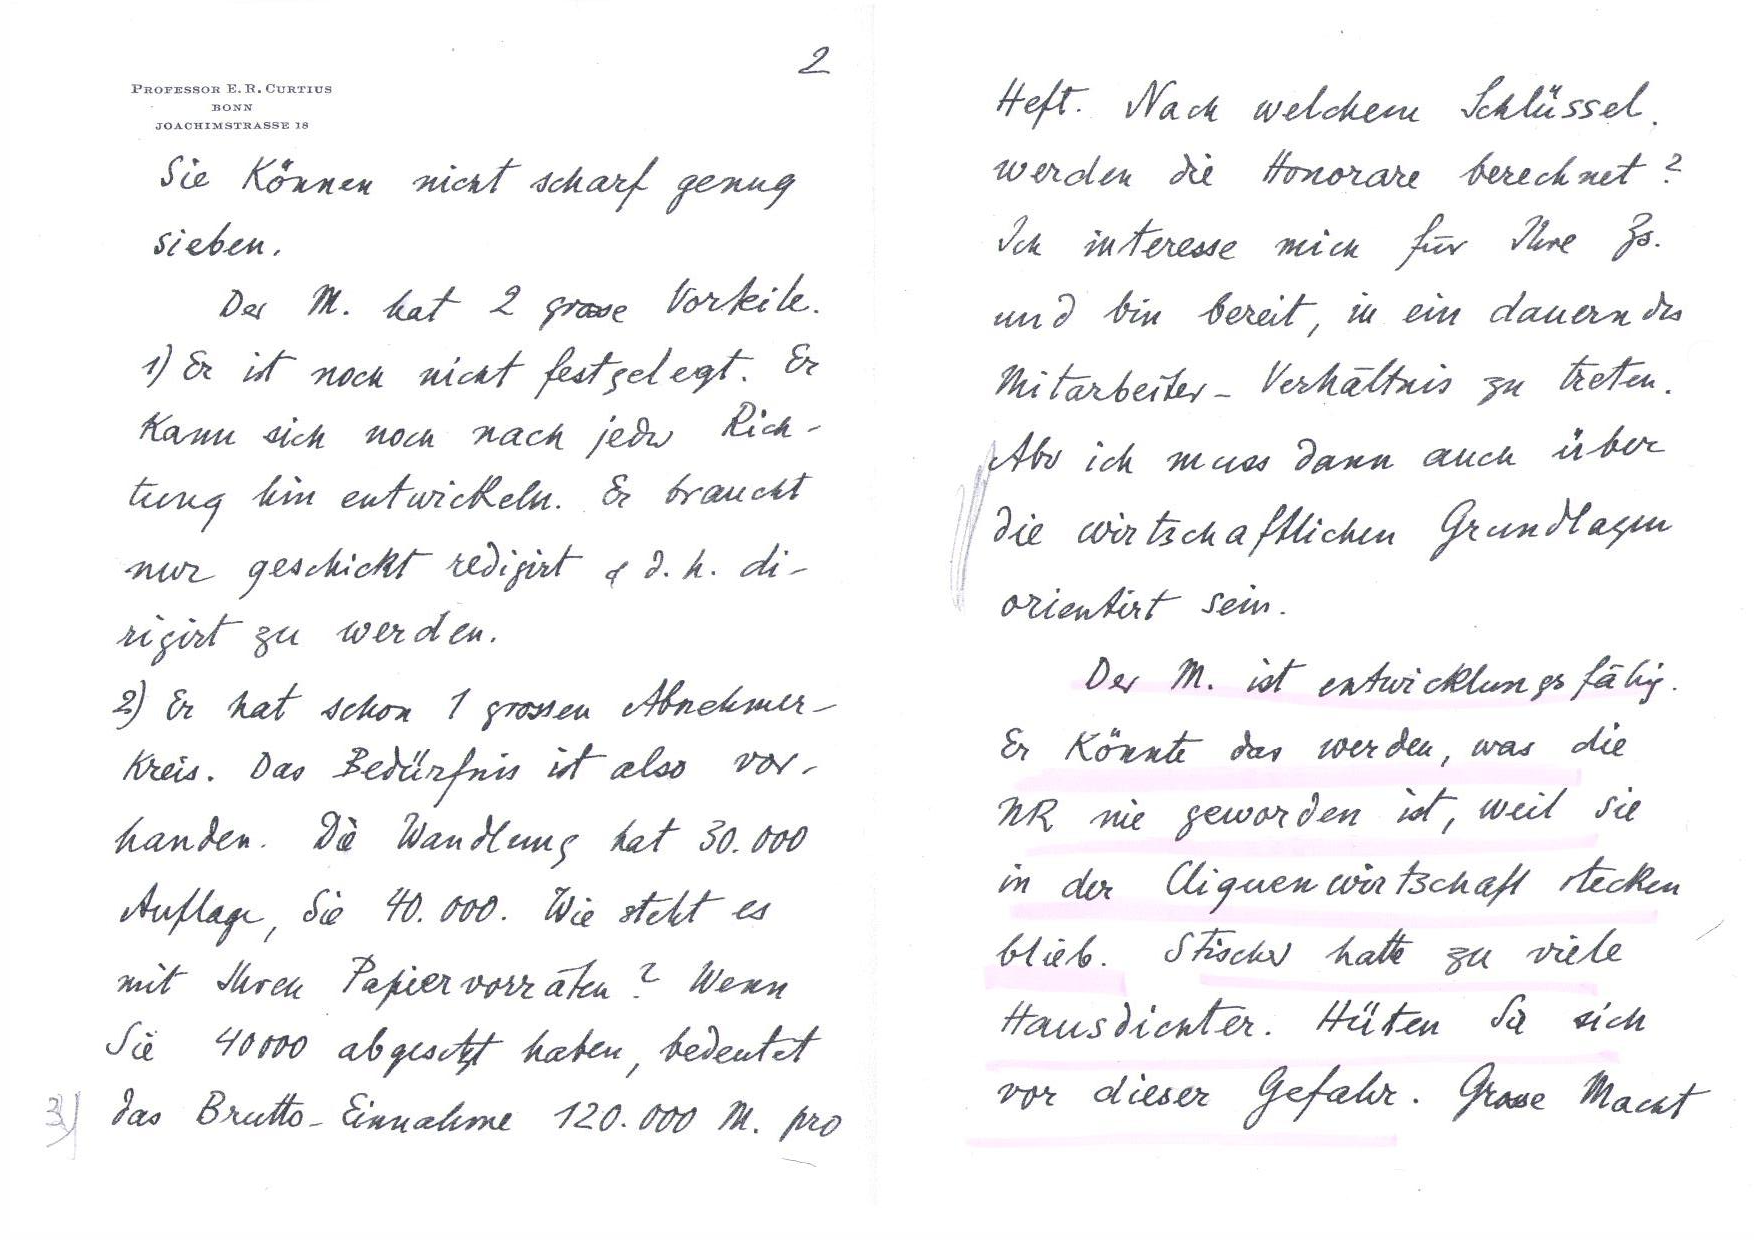 2
PROFESSOR E. R. CURTIUS
BONN
JOACHIMSTRASSE 18
Sie können nicht scharf genug
sieben.
Der M. hat 2 grosse Vorteile.
1) Er ist noch nicht festgelegt. Er
kann sich noch nach jeder Rich-
tung hin entwickeln. Er braucht
nur geschickt redigirt & d. h. di-
rigirt zu werden.
2) Er hat schon 1 grossen Abnehmer-
kreis. Das Bedürfnis ist also vor-
handen. Die Wandlung hat 30.000
Auflage, Sie 40.000. Wie steht es
mit Ihren Papiervorräten? Wenn
Sie 40000 abgesetzt haben, bedeutet
3) das Brutto-Einnahme 120.000 M. pro
Heft. Nach welchem Schlüssel
werden die Honorare berechnet?
Ich interesse mich für Ihre Zs.
und bin bereit, in ein dauerndes
Mitarbeiter-Verhältnis zu treten.
Aber ich muss dann auch über
die wirtschaftlichen Grundlagen
orientirt sein.
Der M. ist entwicklungsfähig.
Er könnte das werden, was die
NR nie geworden ist, weil sie
in der Cliquenwirtschaft stecken
blieb. S. Fischer hatte zu viele
Hausdichter. Hüten Sie sich
vor dieser Gefahr. Grosse Macht